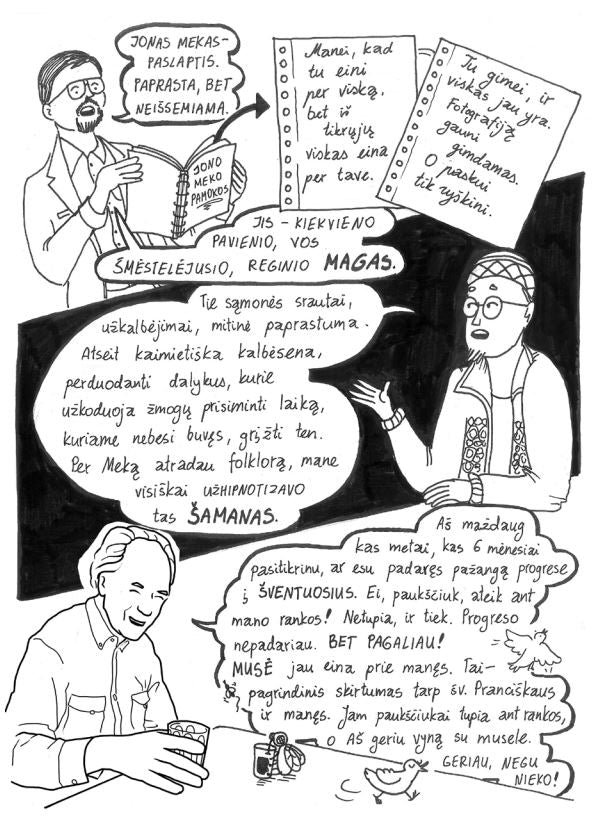 JONAS MEKAS-
PASLAPTIS.
PAPRASTA, BET
NEIŠSEMIAMA.
JONO
MEKO
PAMOKOS
Manei, kad
tu eini
per viską,
bet iš
tikrųjų
viskas eina
per tave.
Tu gimei, ir
viskas jau yra.
Fotografiją
gauni
gimdamas.
O paskui
tik ryškini.
JIS - KIEKVIENO
PAVIENIO, VOS
ŠMĖSTELĖJUSIO, REGINIO MAGAS.
Tie sąmonės srautai,
užkalbėjimai, mitinė paprastuma.
Atseit kaimietiška kalbėsena,
perduodanti dalykus, kurie
užkoduoja žmogų prisiminti laiką,
kuriame nebesi buvęs, grįžti ten.
Per Meką atradau folklorą, mane
visiškai UŽHIPNOTIZAVO
tas ŠAMANAS.
Aš maždaug
kas metai, kas 6 mėnesiai
pasitikrinu, ar esu padaręs pažangą progrese
į ŠVENTUOSIUS. Ei, paukščiuk, ateik ant
mano rankos! Netupia, ir tiek. Progreso
nepadariau. BET PAGALIAU!
MUSĖ jau eina prie manęs. Tai-
pagrindinis skirtumas tarp šv. Pranciškaus
ir manęs. Jam paukščiukai tupia ant rankos,
o Aš geriu vyną su musele.
GERIAU, NEGU
NIEKO!